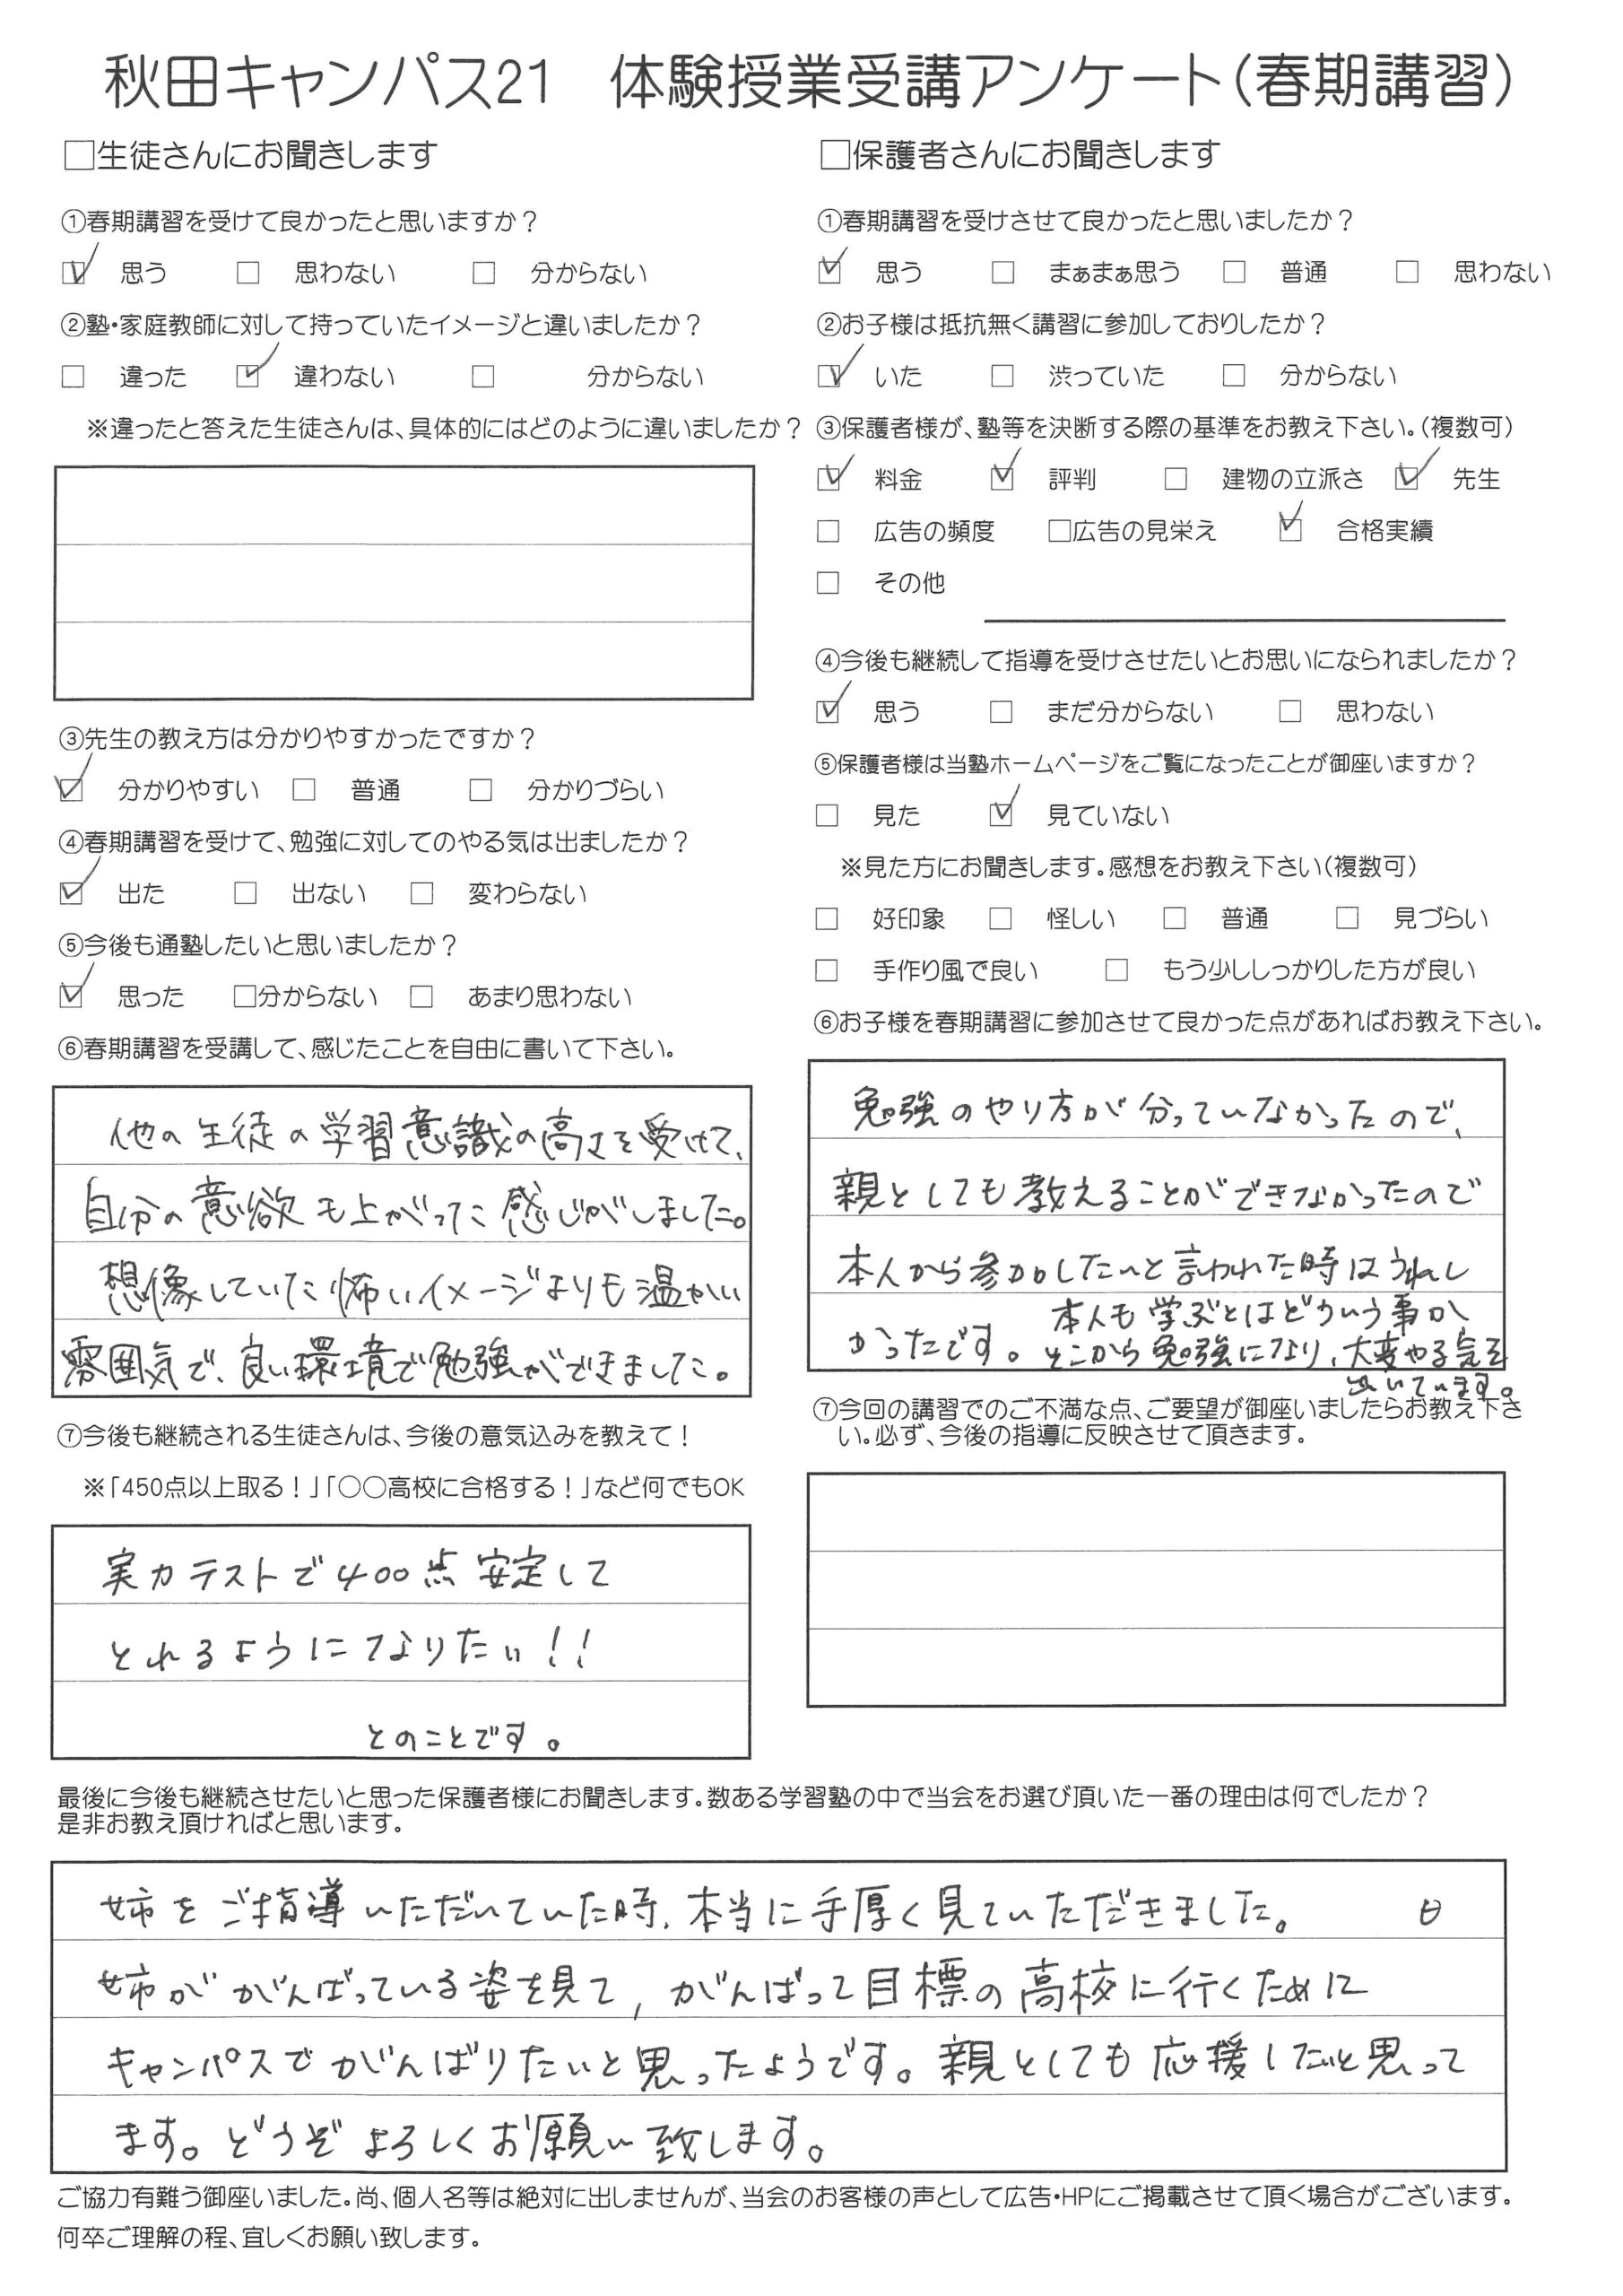 秋田キャンパス21　体験授業受講アンケート（春期講習）
□生徒さんにお聞きします
①春期講習を受けて良かったと思いますか？
☑ 思う □ 思わない □ 分からない
②塾・家庭教師に対して持っていたイメージと違いましたか？
□ 違った ☑ 違わない □ 分からない
※違ったと答えた生徒さんは、具体的にはどのように違いましたか？
③先生の教え方は分かりやすかったですか？
☑ 分かりやすい □ 普通 □ 分かりづらい
④春期講習を受けて、勉強に対してのやる気は出ましたか？
☑ 出た □ 出ない □ 変わらない
⑤今後も通塾したいと思いましたか？
☑ 思った □分からない □ あまり思わない
⑥春期講習を受講して、感じたことを自由に書いて下さい。
他の生徒の学習意識の高さを受けて、
自分の意欲も上がった感じがしました。
想像していた怖いイメージよりも温かい
雰囲気で、良い環境で勉強ができました。
⑦今後も継続される生徒さんは、今後の意気込みを教えて！
※「450点以上取る！」「○○高校に合格する！」など何でもOK
実力テストで400点安定して
とれるようになりたい！！
とのことです。
□保護者さんにお聞きします
①春期講習を受けさせて良かったと思いましたか？
☑ 思う □ まぁまぁ思う □ 普通 □ 思わない
②お子様は抵抗無く講習に参加しておりしたか？
☑ いた □ 渋っていた □ 分からない
③保護者様が、塾等を決断する際の基準をお教え下さい。（複数可）
☑ 料金 ☑ 評判 □ 建物の立派さ ☑ 先生
□ 広告の頻度 □広告の見栄え ☑ 合格実績
□ その他
④今後も継続して指導を受けさせたいとお思いになられましたか？
☑ 思う □ まだ分からない □ 思わない
⑤保護者様は当塾ホームページをご覧になったことが御座いますか？
□ 見た ☑ 見ていない
※見た方にお聞きします。感想をお教え下さい（複数可）
□ 好印象 □ 怪しい □ 普通 □ 見づらい
□ 手作り風で良い □ もう少ししっかりした方が良い
⑥お子様を春期講習に参加させて良かった点があればお教え下さい。
勉強のやり方が分っていなかったので、
親としても教えることができなかったので
本人から参加したいと言われた時はうれし
かったです。本人も学ぶとはどういう事か
そこから勉強になり、大変やる気を
いています。
⑦今回の講習でのご不満な点、ご要望が御座いましたらお教え下さ
い。必ず、今後の指導に反映させて頂きます。
最後に今後も継続させたいと思った保護者様にお聞きします。数ある学習塾の中で当会をお選び頂いた一番の理由は何でしたか？
是非お教え頂ければと思います。
姉をご指導いただいていた時、本当に手厚く見ていただきました。
姉ががんばっている姿を見て、がんばって目標の高校に行くために
キャンパスでがんばりたいと思ったようです。親としても応援したいと思って
ます。どうぞよろしくお願い致します。
ご協力有難う御座いました。尚、個人名等は絶対に出しませんが、当会のお客様の声として広告・HPにご掲載させて頂く場合がございます。
何卒ご理解の程、宜しくお願い致します。